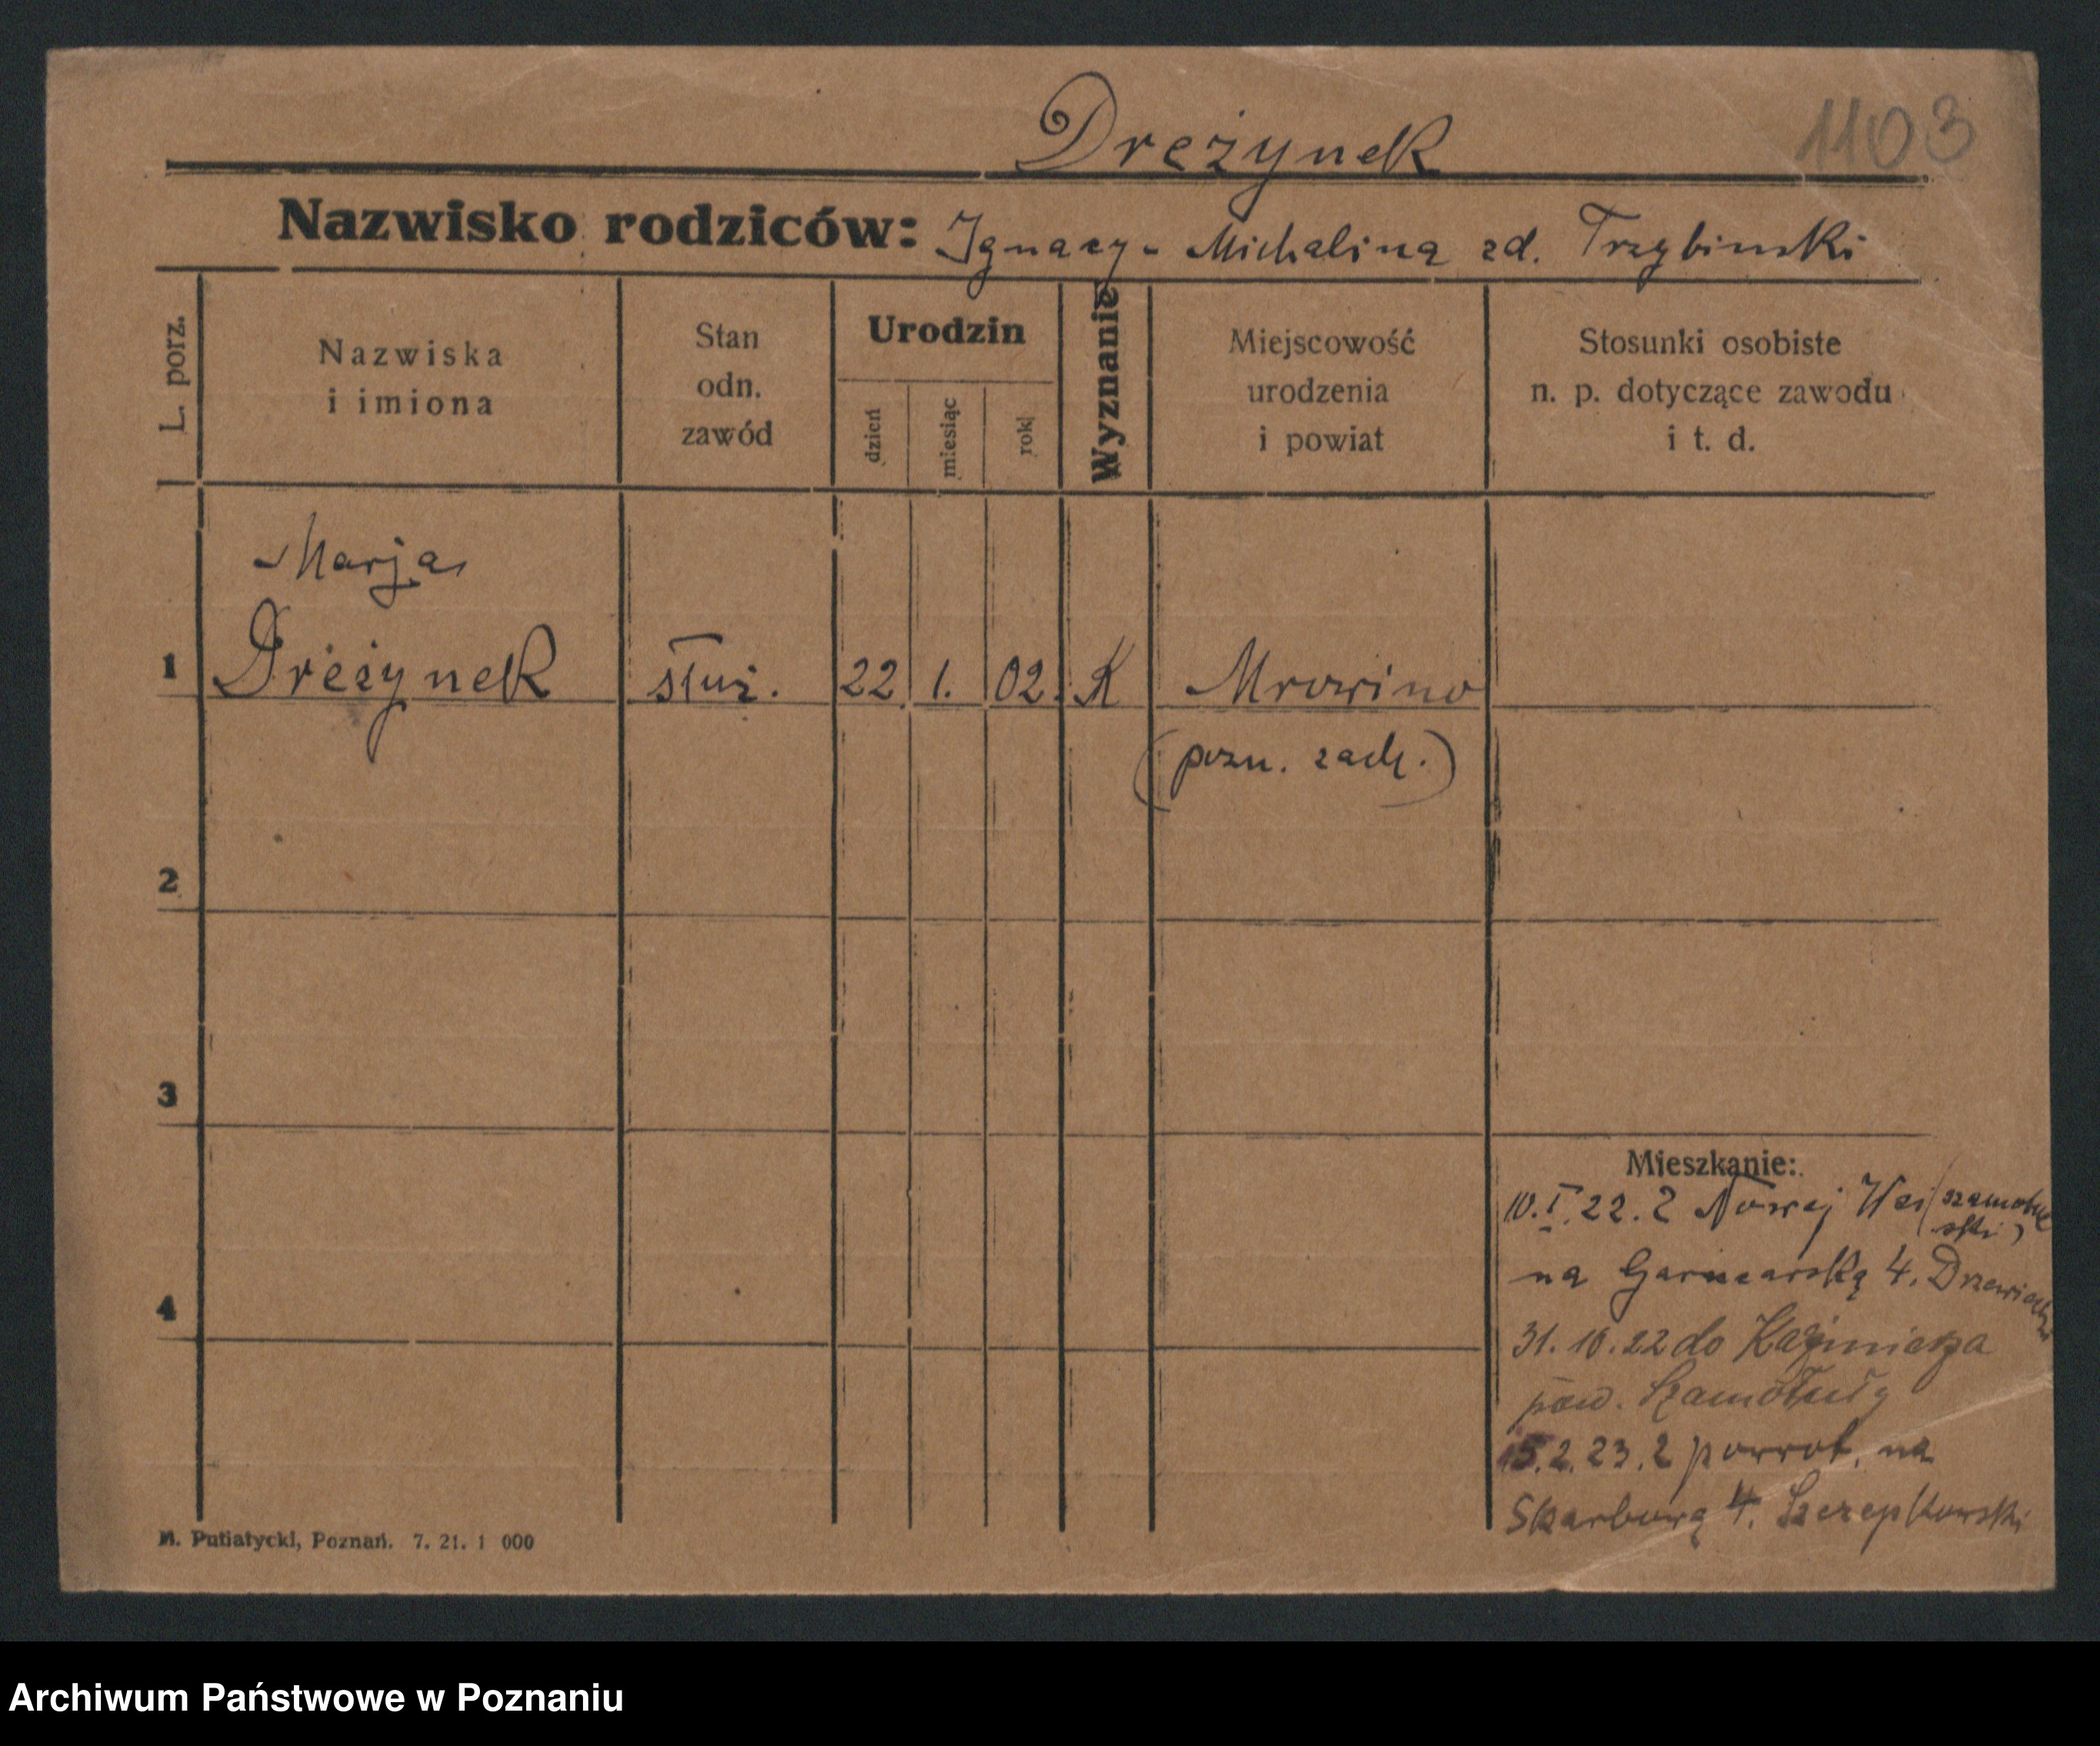 Dreżynek
1103
Nazwisko rodziców: Ignacy - Michalina zd. Trzybinski
L. porz.
Nazwiska
i imiona
Stan
odn.
zawód
Urodzin
dzień
miesiąc
rok
Wyznanie
Miejscowość
urodzenia
i powiat
Stosunki osobiste
n. p. dotyczące zawodu
i t. d.
Marja
1 Dreżynek służ. 22. 1. 02. K Mrowino
(pozn. zach.)
2
3
4
Mieszkanie:
10. I. 22. z Nowej Wsi (szamotulski)
na Garncarską 4.
31. 10. 22 do Kaźmierza
pow. Szamotuły
15. 2. 23. z powrot. na
Skarbową 4. Szczepkowski
M. Putiatycki, Poznań. 7. 21. 1 000
Archiwum Państwowe w Poznaniu